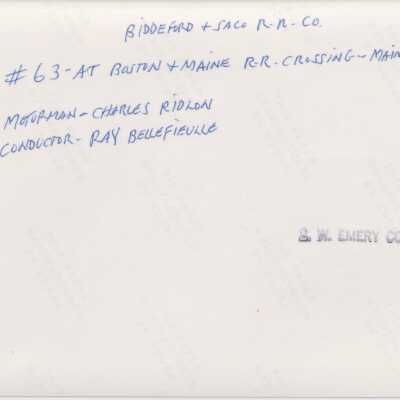 BIDDEFORD + SACO R.R. CO.
#63 - AT BOSTON + MAINE R.R. CROSSING - MAIN
MOTORMAN - CHARLES RIDLON
CONDUCTOR - RAY BELLEFIEULLE
S. W. EMERY CO